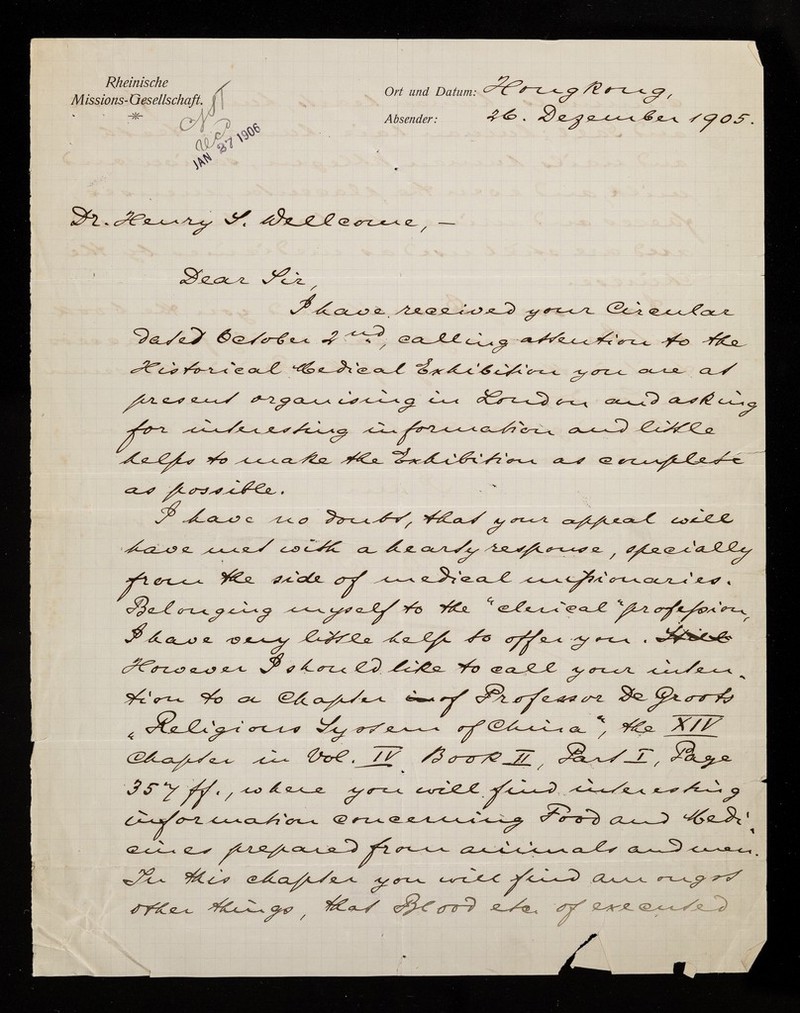 Rheinische
Missions-Gesellschaft.
Ort und Datum: Hongkong,
Absender: 26. Dezember 1905.
JAN 27 1906
Dr. Henry S. Wellcome, —
Dear Sir,
I have received your Circular
dated October 2nd, calling attention to the
Historical Medical Exhibition you are at
present organising in London and asking
for interesting information and little
helps to make the Exhibition as complete
as possible.
I have no doubt, that your appeal will
have met with a hearty response, specially
from the side of medical missionaries.
Belonging myself to the "clerical" profession,
I have very little help to offer you. Still
However I should like to call your inten-
tion to a Chapter in of Professor De Groots
„Religious System of China", the XIV
Chapter in Vol. IV Book II, Part I, Page
357 ff., where you will find interesting
information concerning Food and Medi-
cines prepared from animals and men.
In this chapter you will find amongst
other things, that Blood etc. of executed